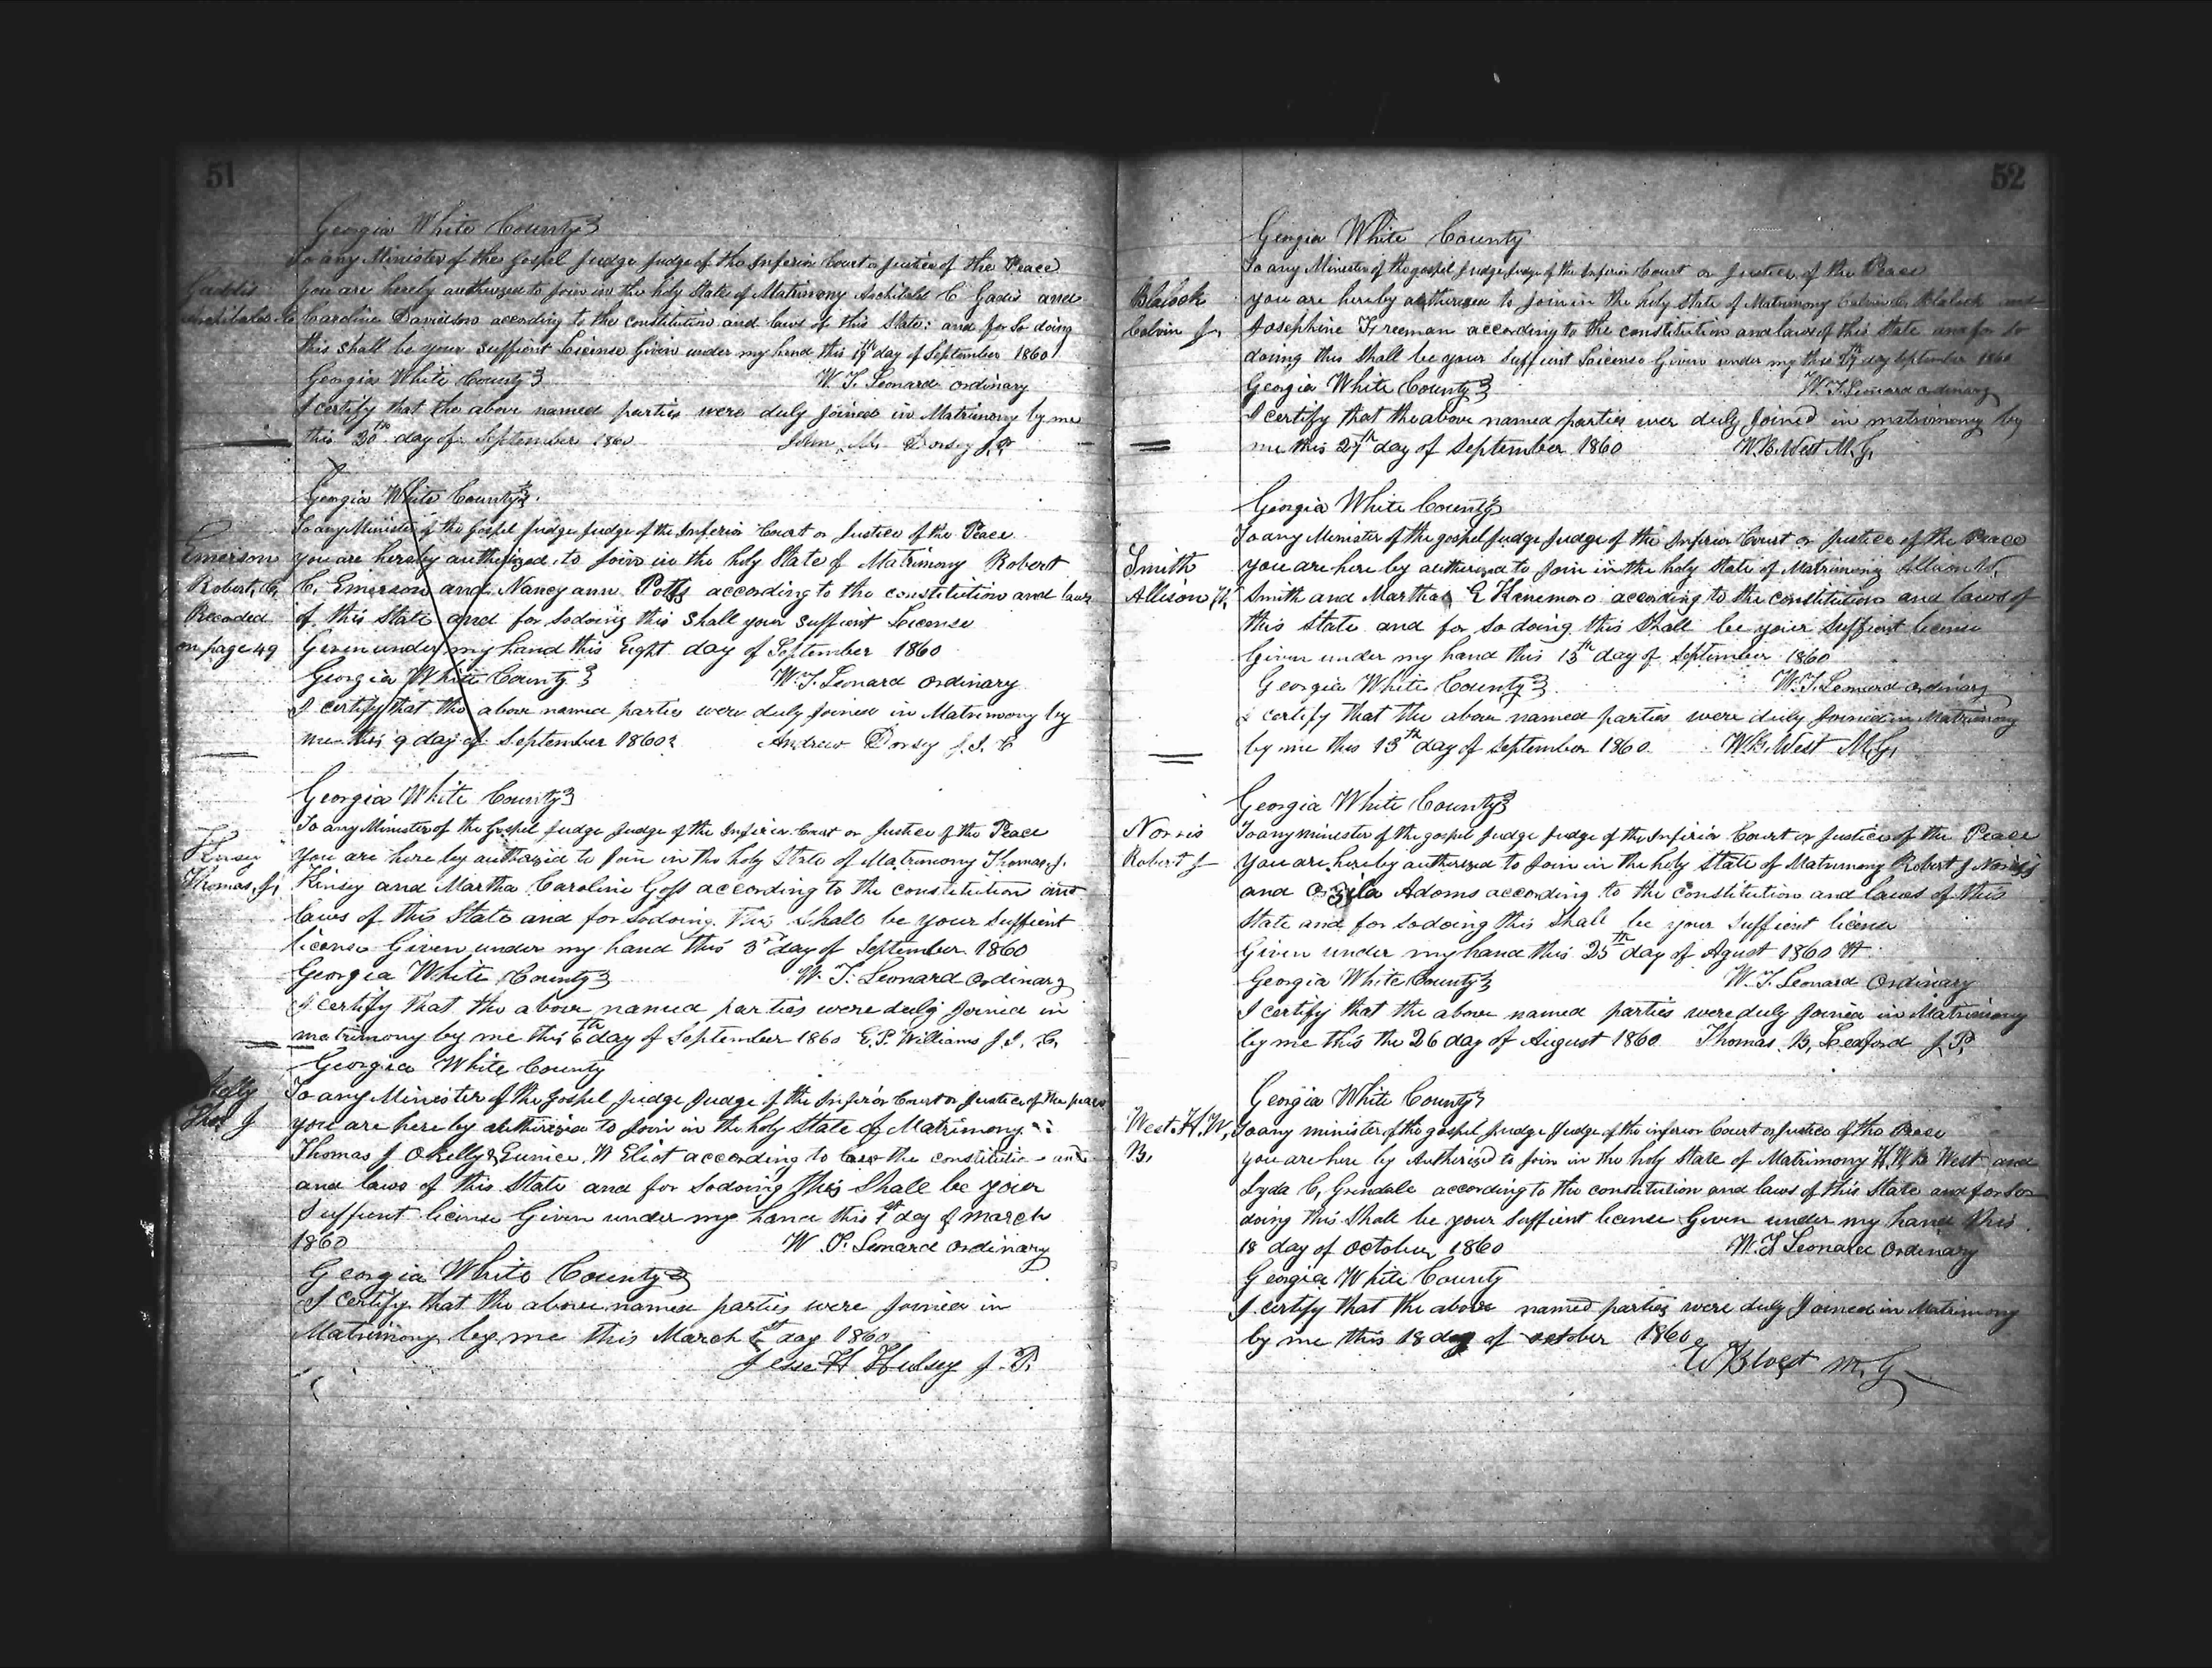 51
Georgia White County
To any Minister of the Gospel Judge Judge of the Inferior Court or Justice of the Peace
Gaddis
You are hereby authorized to Join in the holy State of Matrimony Archibald C Gadis and
Archibald C
Caroline Davidson according to the constitution and laws of this State: and for So doing
this shall be your suffient License Given under my hand this day of September 1860
Georgia White County
W. T. Leonard ordinary
I certify that the above named parties were duly Joined in Matrimony by me
this 30th day of September 1860
John M. Dorsey J.P.
Georgia White County
To any Minister of the Gospel Judge Judge of the Inferior Court or Justice of the Peace
Emerson
you are hereby authorized to Join in the holy State of Matrimony Robert
Robert, C,
C. Emerson and Nancy ann Potts according to the constitution and laws
Recorded
of this State and for so doing this shall your suffient License
on page 49
Given under my hand this Eight day of September 1860
Georgia White County
W. T. Leonard Ordinary
I certify that the above named partie were duly Joined in Matrimony by
me this 9 day of September 1860
Andrew Dorsey J. I. C
Georgia White County
To any Minister of the Gospel Judge Judge of the Inferior Court or Justice of the Peace
Kinsey
You are here by authorized to Join in the holy State of Matrimony Thomas J.
Thomas, J,
Kinsey and Martha Caroline Goss according to the constitution and
laws of this State and for so doing This Shall be your suffient
license Given under my hand this 3rd day of September 1860
Georgia White County
W. T. Leonard Ordinary
I certify That the above named parties were duly Joined in
matrimony by me this 6th day of September 1860 E. P. Williams J. I. C.
Georgia White County
Kelly
To any Minister of the Gospel Judge Judge of the Inferior Court or Justice of the peace
Thos J
you are here by authorized to Join in the holy State of Matrimony
Thomas J OKelly & Eunice W Eliot according to the constitution and
and laws of this State and for so doing This Shall be your
Suffient license Given under my hand this 1st day of March
1860
W. P. Leonard Ordinary
Georgia White County
I certify that the above named parties were Joined in
Matrimony by me this March day 1860
Jesse H Hulsey J. P.
52
Georgia White County
To any Minister of the gospel Judge Judge of the Inferior Court or Justice of the Peace
Blalock
you are hereby authorized to join in the holy State of Matrimony Calvin Blalock and
Calvin J,
Josephine Freeman according to the constitution and laws of this State and for so
doing this Shall be your suffient License Given under my this day September 1860
Georgia White County
W. T. Leonard ordinary
I certify that the above named parties wer duly Joined in matrimony by
me this 27th day of September 1860
W. B. West M. G,
Georgia White County
To any Minister of the gospel Judge Judge of the Inferior Court or Justice of the Peace
Smith
you are here by authorized to Join in the holy State of Matrimony Allison W.
Allison W,
Smith and Martha E Kenemore according to the constitution and laws of
this State and for so doing this Shall be your Suffient license
Given under my hand this 13th day of September 1860
Georgia White County
W. T. Leonard Ordinary
I certify that the above named parties were duly Joined in Matrimony
by me this 13th day of September 1860
W. B. West M. G,
Georgia White County
Norris
To any minister of the gospel Judge Judge of the Inferior Court or Justice of the Peace
Robert J
You are hereby authorized to Join in the holy State of Matrimony Robert J Norris
and Ozila Adams according to the constitution and laws of this
State and for so doing this Shall be your suffient license
Given under my hand this 25th day of Agust 1860
Georgia White County
W. T. Leonard Ordinary
I certify that the above named parties were duly Joined in Matrimony
by me this the 26 day of August 1860 Thomas. B, Ledford J. P.
Georgia White County
West. H. W,
To any minister of the gospel Judge Judge of the inferior Court or Justice of the Peace
B,
you are here by Authorized to Join in the holy State of Matrimony H. W. B West and
Lyda C, Grindale according to the constitution and laws of this State and for so
doing this Shall be your Suffient license Given under my hand this
18 day of October 1860
W. T Leonard Ordinary
Georgia White County
I certify that the above named parties were duly Joined in Matrimony
by me this 18 day of October 1860
W B West M. G